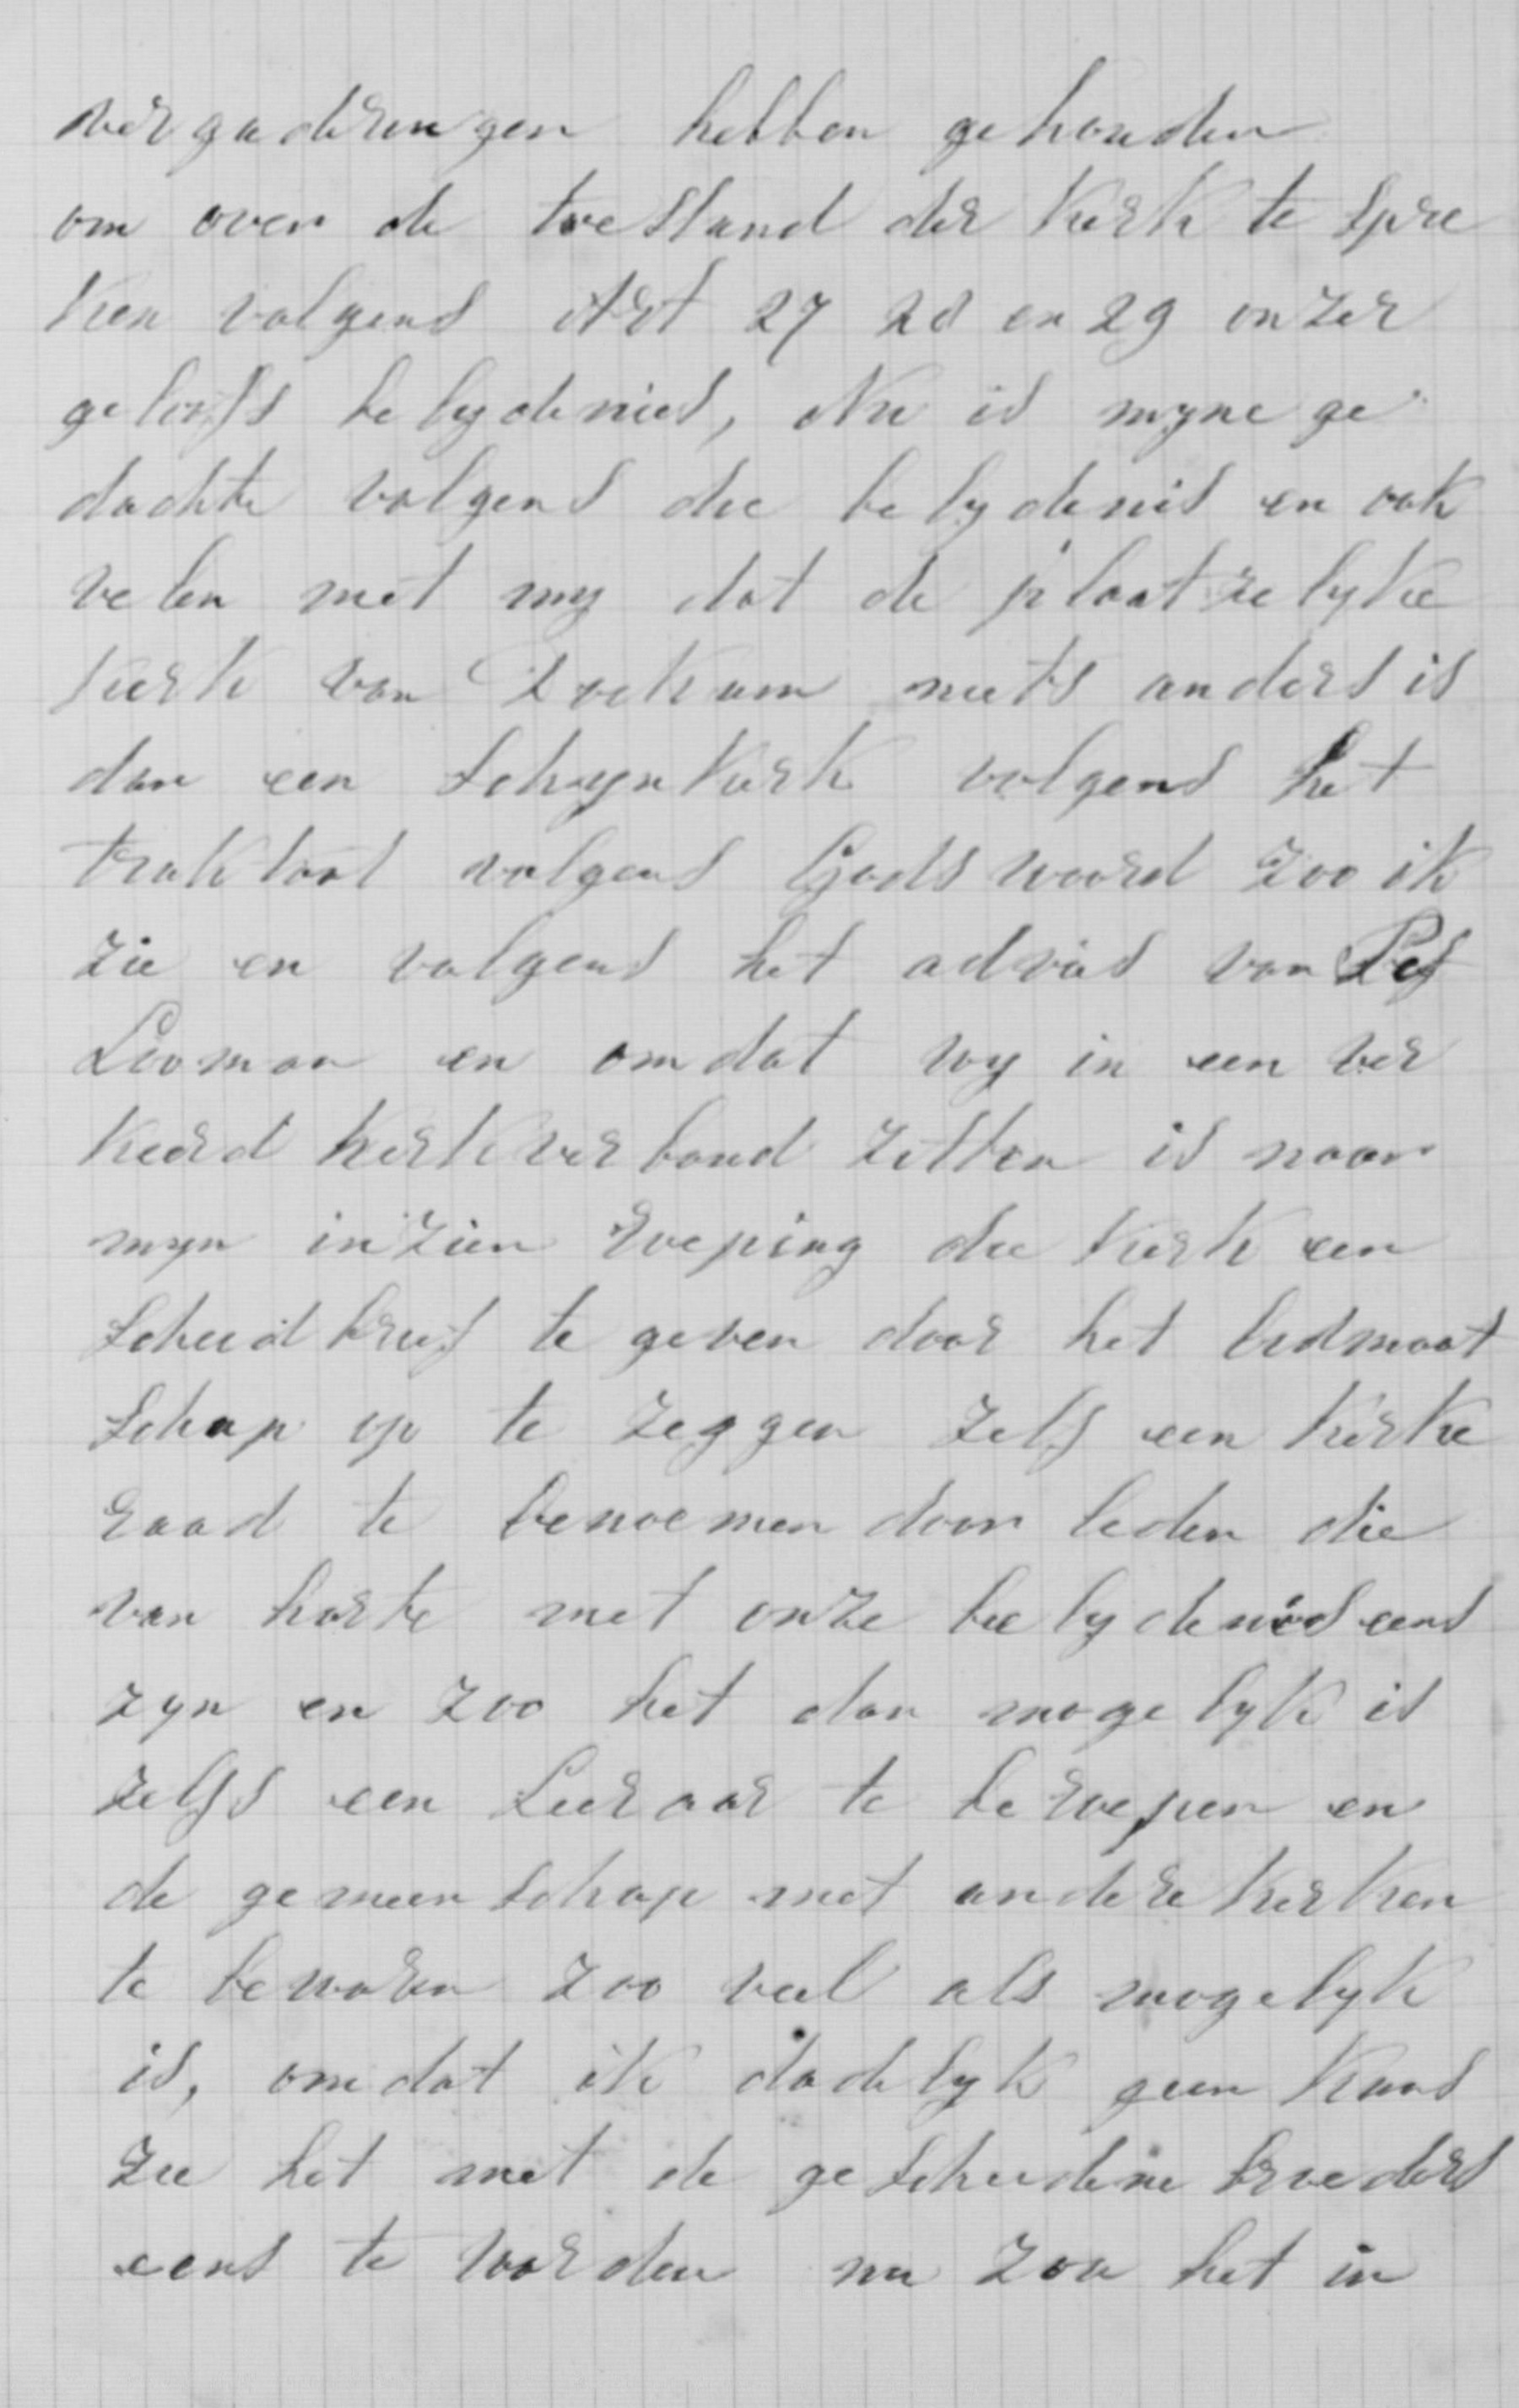 vergaderingen hebben gehouden
om over de toestand der Kerk te spre
ken volgens Art 27 28 en 29 onzer
geloofs belydenies, Nu is myne ge
dachte volgens die belydenis en ook
velen met my dat de plaatzelyke
Kerk van Dockum niets anders is
dan een Schynkerk volgens het
traktaat volgens Gods woord zoo ik
zie en volgens het advies van
Looman en omdat wy in een ver
keerd Kerkverband zitten is naar
myn inzien roeping die Kerk een
Scheidbrief te geven door het lidmaat
Schap op te zeggen zelf een Kerke
raad te benoemen door leden die
van harte met onze belydenis eens
zyn en zoo het dan mogelyk is
zelfs een Leeraar te beroepen en
de gemeenschap met andere Kerken
te bewaren zoo veel als mogelyk
is, omdat ik dadelyk geen Kans
zie het met de gescheidene broeders
eens te worden nu zou het in